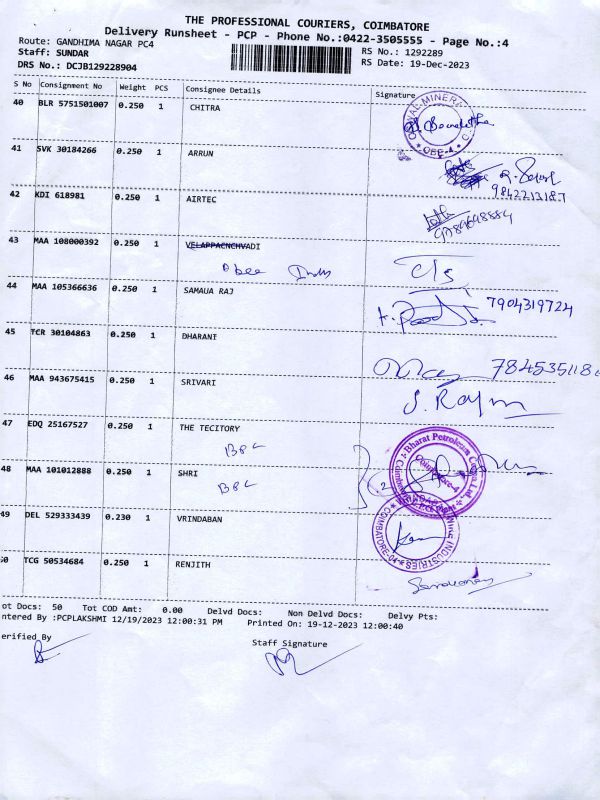 THE PROFESSIONAL COURIERS, COIMBATORE
Delivery Runsheet - PCP - Phone No.:0422-3505555 - Page No.:4
Route: GANDHIMA NAGAR PC4
RS No.: 1292289
Staff: SUNDAR
RS Date: 19-Dec-2023
DRS No.: DCJB129228904
S No Consignment No Weight PCS Consignee Details Signature
40 BLR 5751501007 0.250 1 CHITRA
41 SVK 30184266 0.250 1 ARRUN
9842213187
42 KDI 618981 0.250 1 AIRTEC
43 MAA 108000392 0.250 1 VELAPPACNCHVADI
44 MAA 105366636 0.250 1 SAMAUA RAJ
7904319724
45 TCR 30104863 0.250 1 DHARANI
46 MAA 943675415 0.250 1 SRIVARI
S. Rajm
47 EDQ 25167527 0.250 1 THE TECITORY
48 MAA 101012888 0.250 1 SHRI
49 DEL 529333439 0.230 1 VRINDABAN
50 TCG 50534684 0.250 1 RENJITH
ot Docs: 50 Tot COD Amt: 0.00 Delvd Docs: Non Delvd Docs: Delvy Pts:
ntered By :PCPLAKSHMI 12/19/2023 12:00:31 PM Printed On: 19-12-2023 12:00:40
erified By
Staff Signature